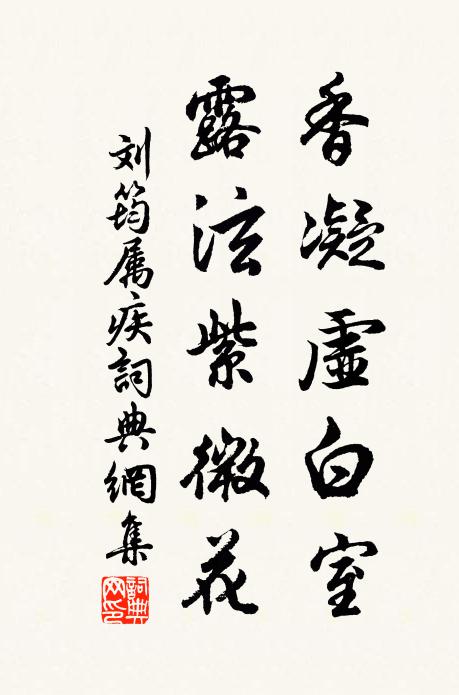 香凝虛白室
露泫紫微花
刘筠属疾詞典網集
詞典網印